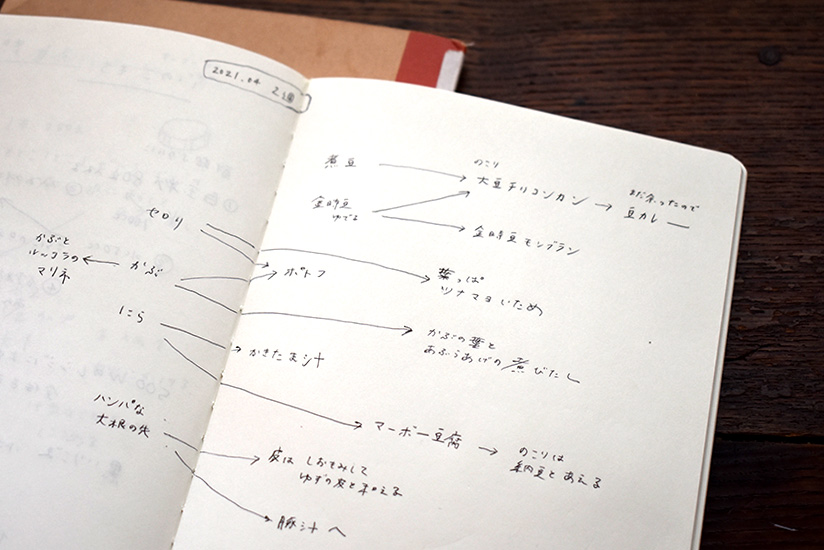 2021.04 2週
煮豆
のこり
大豆チリコンカン
まだ余ったので
豆カレー
金時豆
ゆでる
金時豆モンブラン
セロリ
かぶと
ルッコラの
マリネ
かぶ
ポトフ
葉っぱ
ツナマヨいため
かぶの葉と
あぶらあげの煮びたし
にら
かきたま汁
マーボー豆腐
のこりは
納豆とあえる
ハンパな
大根の先
皮は しおでもみして
ゆずの皮と和える
豚汁へ